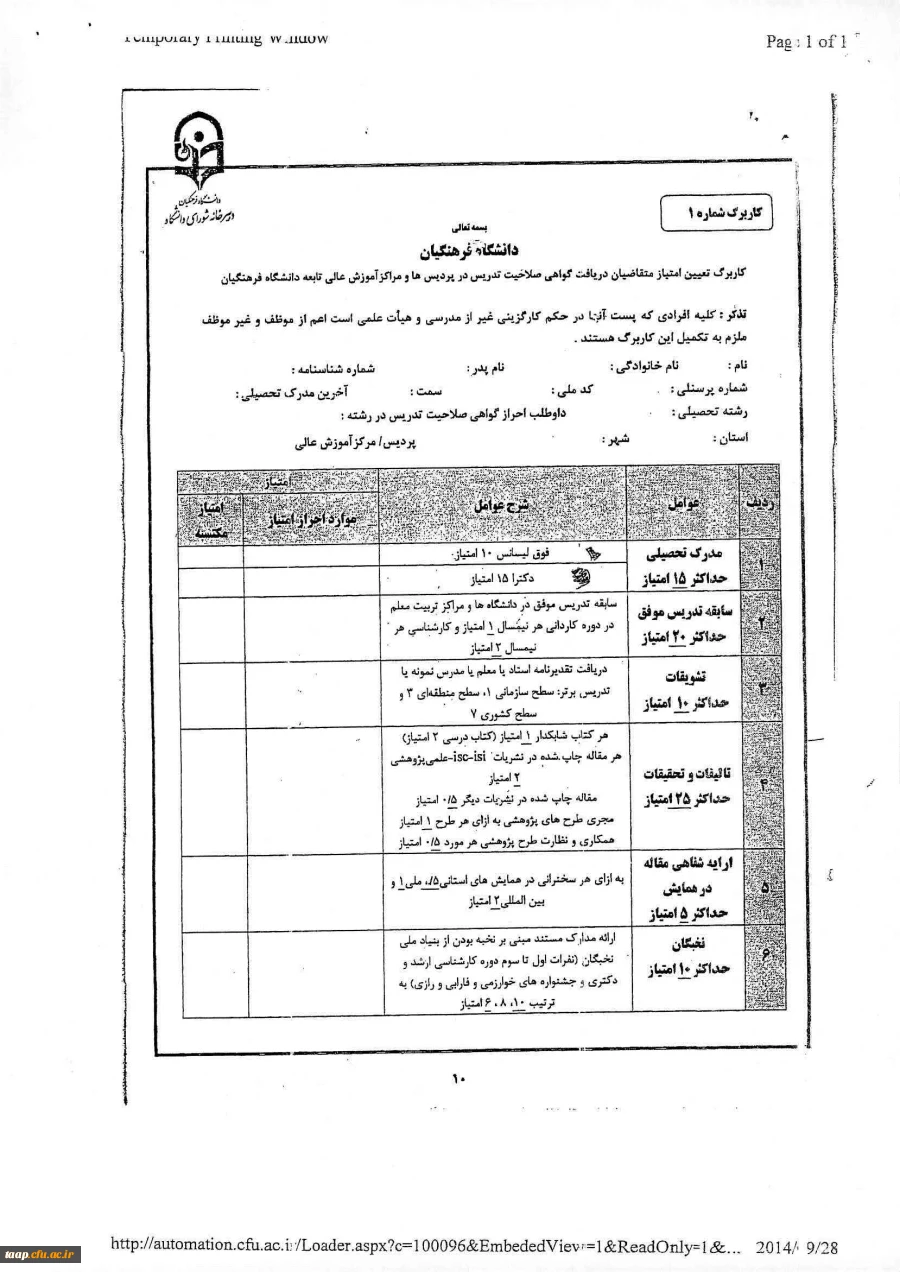 Temporary Printing Window
Page 1 of 1
دانشگاه فرهنگیان
دبیرخانه شورای دانشگاه
کاربرگ شماره ۱
بسمه تعالی
دانشگاه فرهنگیان
کاربرگ تعیین امتیاز متقاضیان دریافت گواهی صلاحیت تدریس در پردیس ها و مراکز آموزش عالی تابعه دانشگاه فرهنگیان
تذکر : کلیه افرادی که پست آنها در حکم کارگزینی غیر از مدرسی و هیأت علمی است اعم از موظف و غیر موظف
ملزم به تکمیل این کاربرگ هستند .
نام : نام خانوادگی : نام پدر : شماره شناسنامه :
شماره پرسنلی : کد ملی : سمت : آخرین مدرک تحصیلی :
رشته تحصیلی : داوطلب احراز گواهی صلاحیت تدریس در رشته :
استان : شهر : پردیس/ مرکز آموزش عالی
ردیف عوامل شرح عوامل امتیاز
موارد احراز امتیاز امتیاز
مکتسبه
۱
مدرک تحصیلی
حداکثر ۱۵ امتیاز
فوق لیسانس ۱۰ امتیاز
دکترا ۱۵ امتیاز
۲
سابقه تدریس موفق
حداکثر ۲۰ امتیاز
سابقه تدریس موفق در دانشگاه ها و مراکز تربیت معلم
در دوره کاردانی هر نیمسال ۱ امتیاز و کارشناسی هر
نیمسال ۲ امتیاز
۳
تشویقات
حداکثر ۱۰ امتیاز
دریافت تقدیرنامه استاد یا معلم یا مدرس نمونه یا
تدریس برتر: سطح سازمانی ۱، سطح منطقه‌ای ۳ و
سطح کشوری ۷
۴
تالیفات و تحقیقات
حداکثر ۲۵ امتیاز
هر کتاب شابکدار ۱ امتیاز (کتاب درسی ۲ امتیاز)
هر مقاله چاپ شده در نشریات isc-isi-علمی‌پژوهشی
۲ امتیاز
مقاله چاپ شده در نشریات دیگر ۰/۵ امتیاز
مجری طرح های پژوهشی به ازای هر طرح ۱ امتیاز
همکاری و نظارت طرح پژوهشی هر مورد ۰/۵ امتیاز
۵
ارایه شفاهی مقاله
در همایش
حداکثر ۵ امتیاز
به ازای هر سخنرانی در همایش های استانی ۰/۵، ملی ۱ و
بین المللی ۲ امتیاز
۶
نخبگان
حداکثر ۱۰ امتیاز
ارائه مدارک مستند مبنی بر نخبه بودن از بنیاد ملی
نخبگان (نفرات اول تا سوم دوره کارشناسی ارشد و
دکتری و جشنواره های خوارزمی و فارابی و رازی) به
ترتیب ۱۰، ۸، ۶ امتیاز
۱۰
http://automation.cfu.ac.ir/Loader.aspx?c=100096&EmbededView=1&ReadOnly=1&... 2014/09/28
taap.cfu.ac.ir